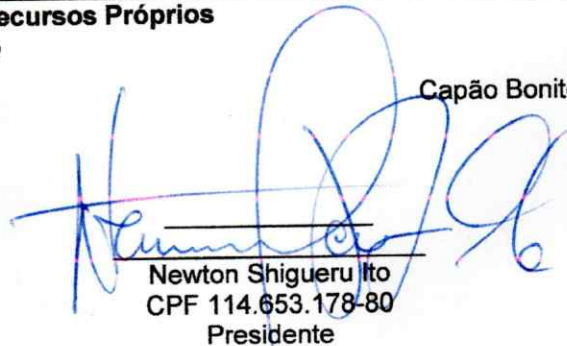 ecursos Próprios
Capão Bonito
Newton Shigueru Ito
CPF 114.653.178-80
Presidente